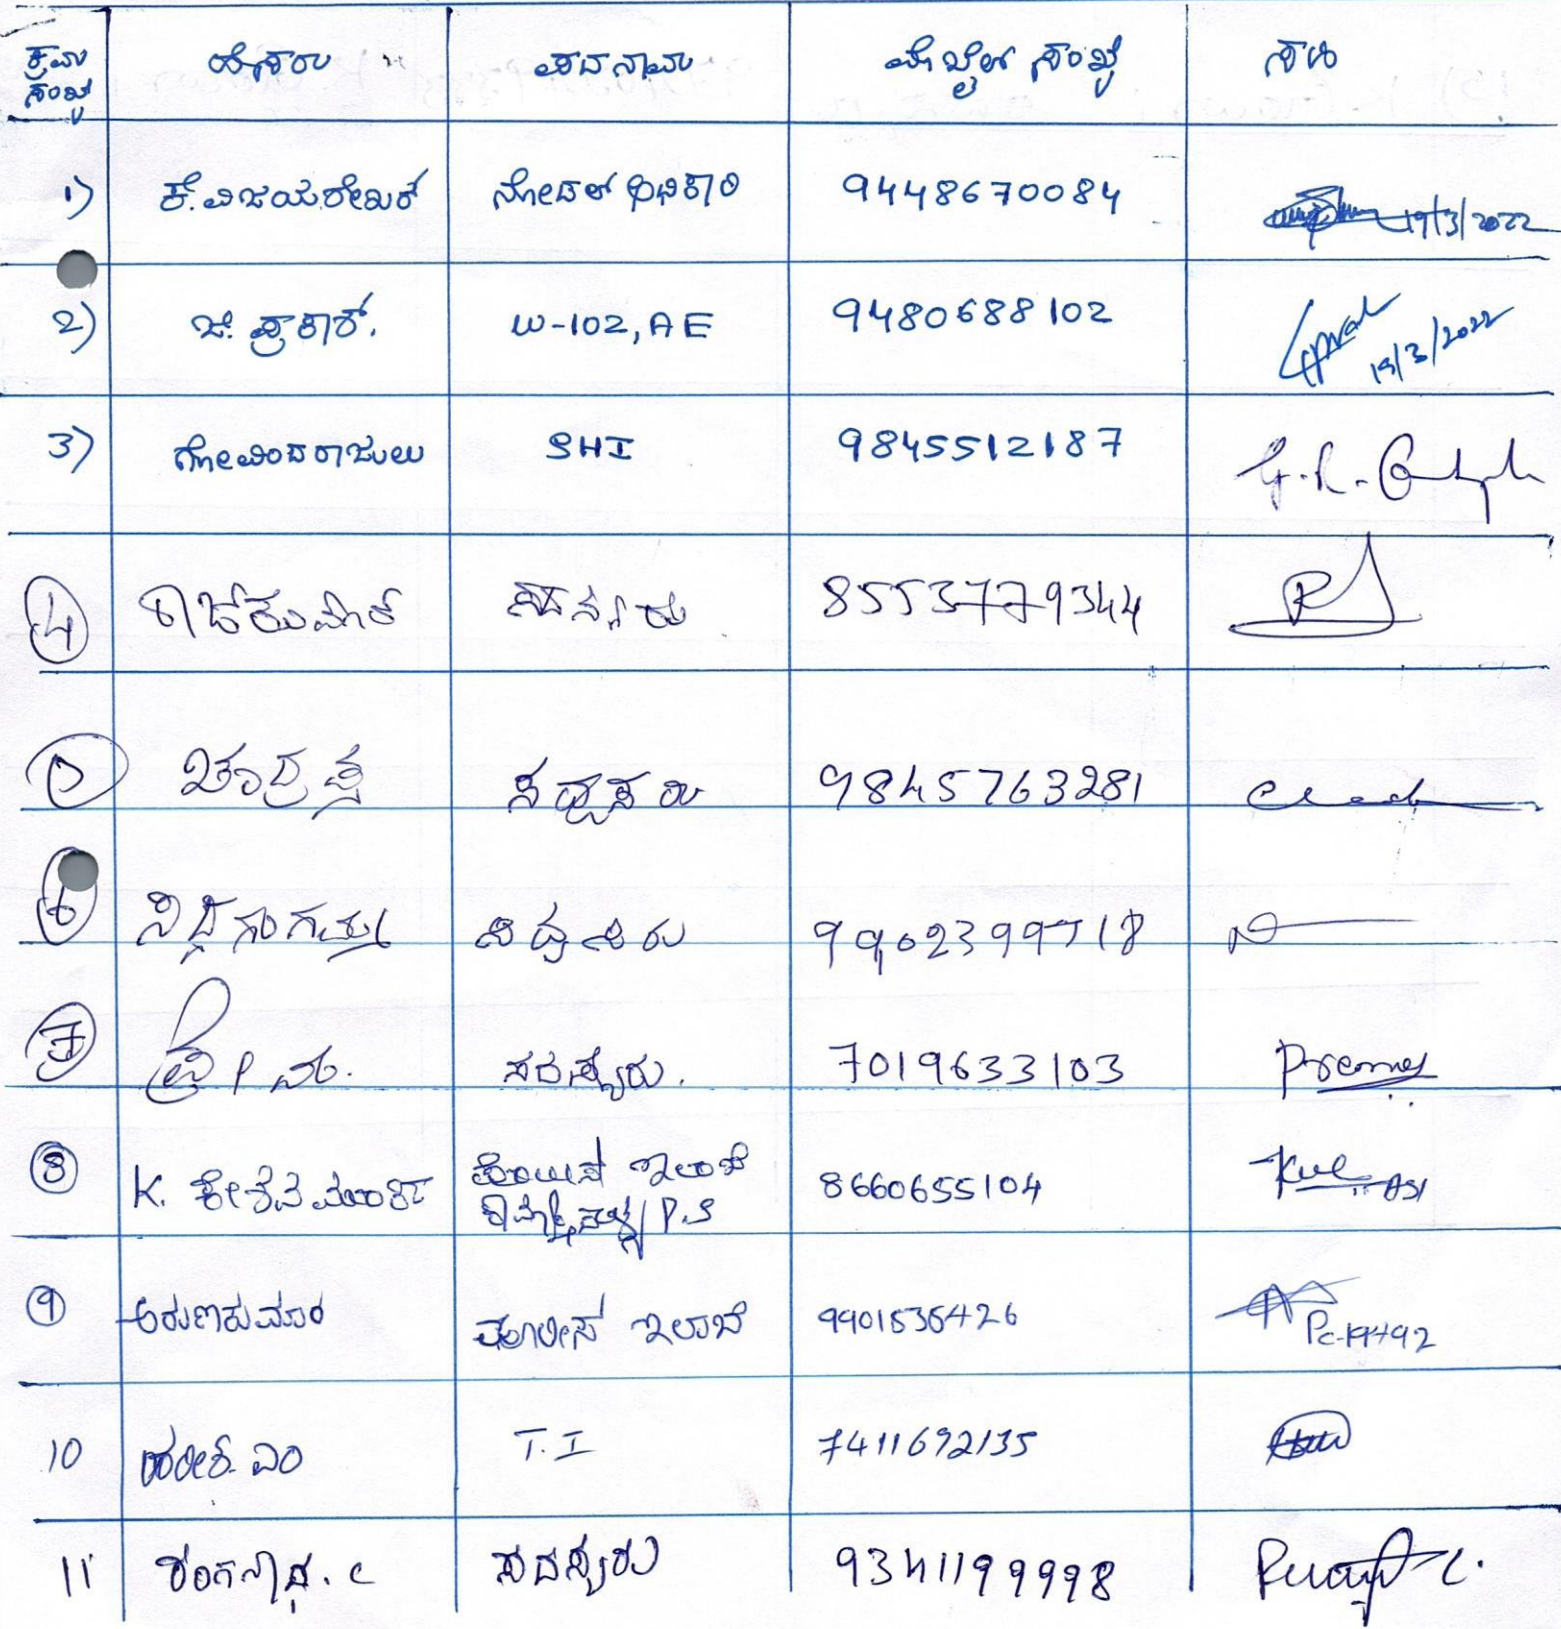 ಕ್ರಮ ಸಂಖ್ಯೆ ಹೆಸರು ಪದನಾಮ ಮೊಬೈಲ್ ಸಂಖ್ಯೆ ಸಹಿ
1) ಕೆ.ವಿಜಯಶೇಖರ್ ನೋಡಲ್ ಅಧಿಕಾರಿ 9448670084 19/3/2022
2) ಜೆ. ಪ್ರಕಾಶ್. W-102, AE 9480688102 19/3/2022
3) ಗೋವಿಂದರಾಜುಲು SHI 9845512187
4 ರಾಜ್‌ಕುಮಾರ್ ಸದಸ್ಯರು 8553779344
9845763281
6 ಸಿದ್ದಗಂಗಮ್ಮ
7 ಪ್ರೇಮ. ಸದಸ್ಯರು. 7019633103 Prema
8 K. ಕೇಶವಮೂರ್ತಿ ಪೊಲೀಸ್ ಇಲಾಖೆ 8660655104 ASI
P.S
9 ಅರುಣಕುಮಾರ ಪೊಲೀಸ್ ಇಲಾಖೆ 9901535426
10 ಹರೀಶ್. ಎಂ T.I 7411692135
11 ರಂಗನಾಥ. C ಸದಸ್ಯರು 9341199998